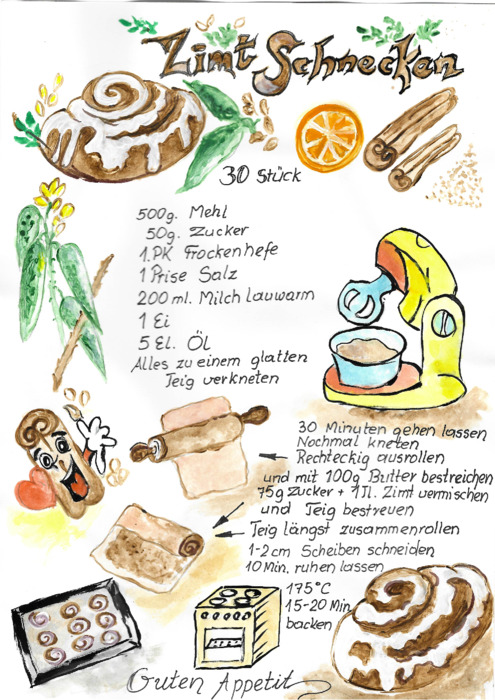 Zimt Schnecken
30 Stück
500g. Mehl
50g. Zucker
1.PK Trockenhefe
1 Prise Salz
200 ml. Milch lauwarm
1 Ei
5 El. Öl
Alles zu einem glatten
Teig verkneten
30 Minuten gehen lassen
Nochmal kneten
Rechteckig ausrollen
und mit 100g Butter bestreichen
75g Zucker + 1 Tl. Zimt vermischen
und Teig bestreuen
Teig längst zusammenrollen
1-2 cm Scheiben schneiden
10 Min. ruhen lassen
175°C
15-20 Min.
backen
Guten Appetit